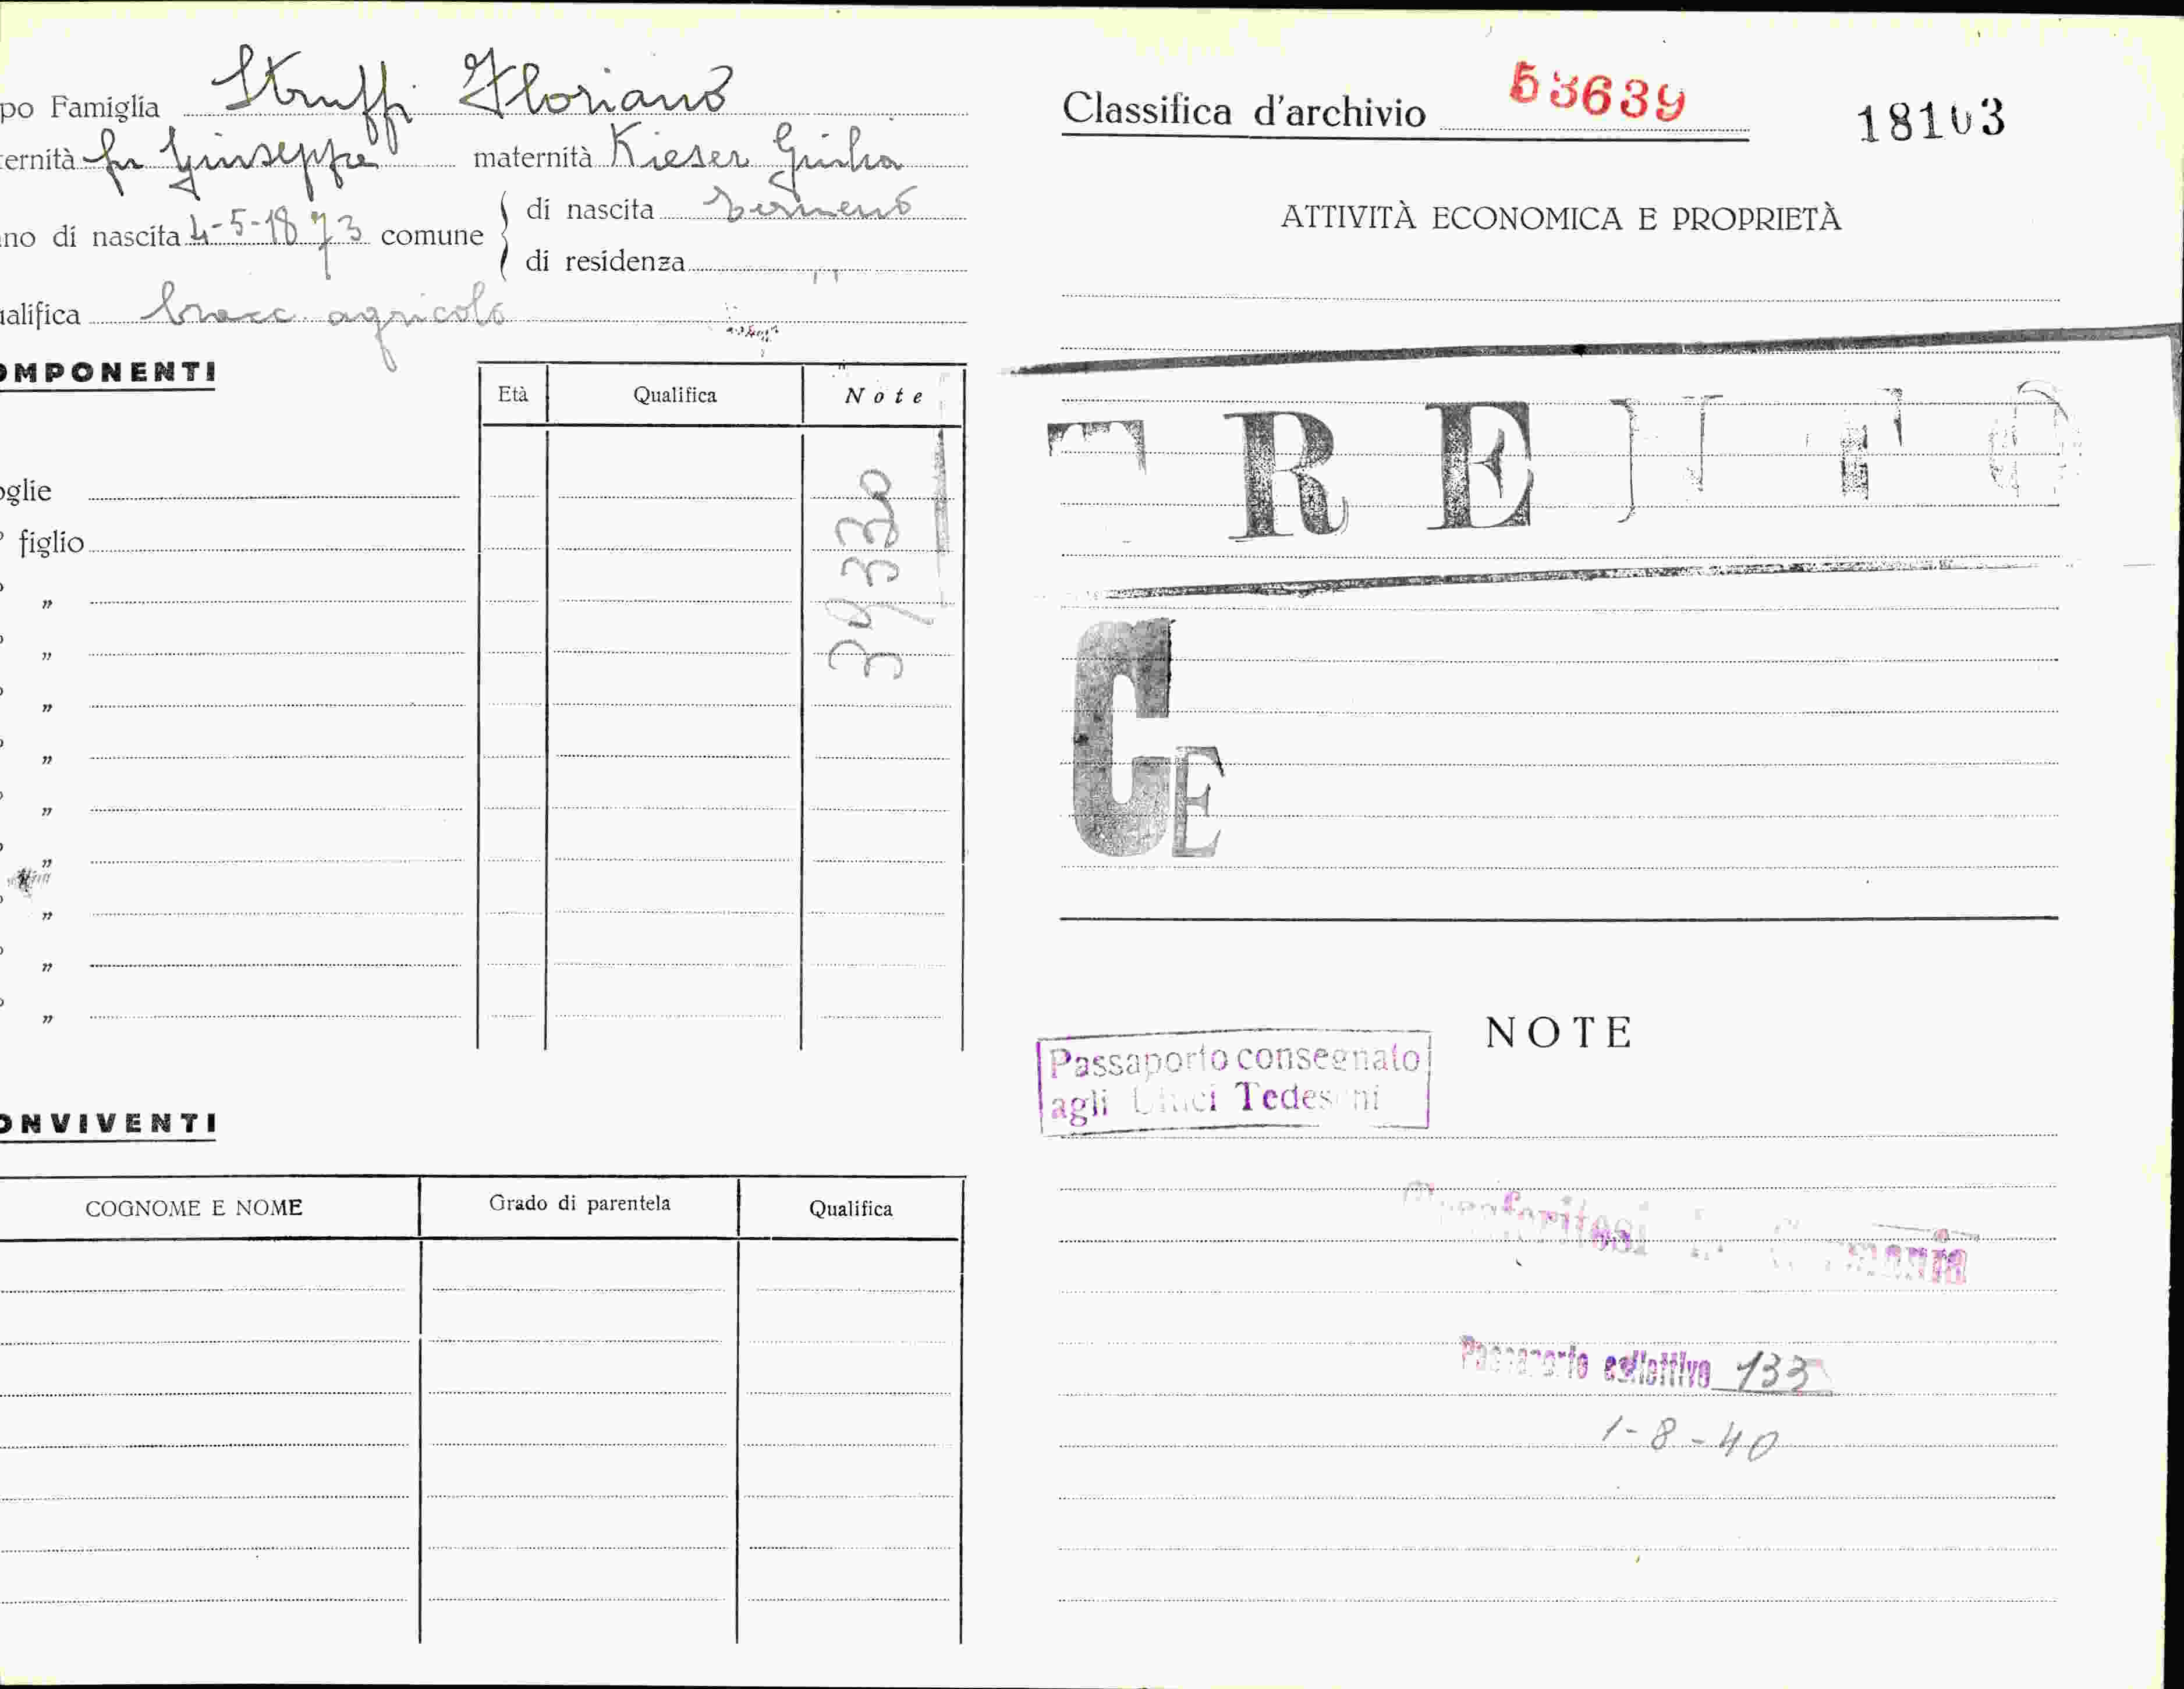 po Famiglia Struffi Floriano
ernità fu Giuseppe maternità Kieser Giulia
no di nascita 4-5-1873 comune
di nascita Termeno
di residenza "
alifica bracc. agricolo
OMPONENTI
Età Qualifica Note
oglie
figlio
"
"
"
"
"
"
"
"
"
39330
ONVIVENTI
COGNOME E NOME Grado di parentela Qualifica
Classifica d'archivio 53639 18103
ATTIVITÀ ECONOMICA E PROPRIETÀ
TRENTO
CE
NOTE
Passaporto consegnato
agli Uffici Tedeschi
Trasferitosi in Germania
Passaporto collettivo 133
1-8-40